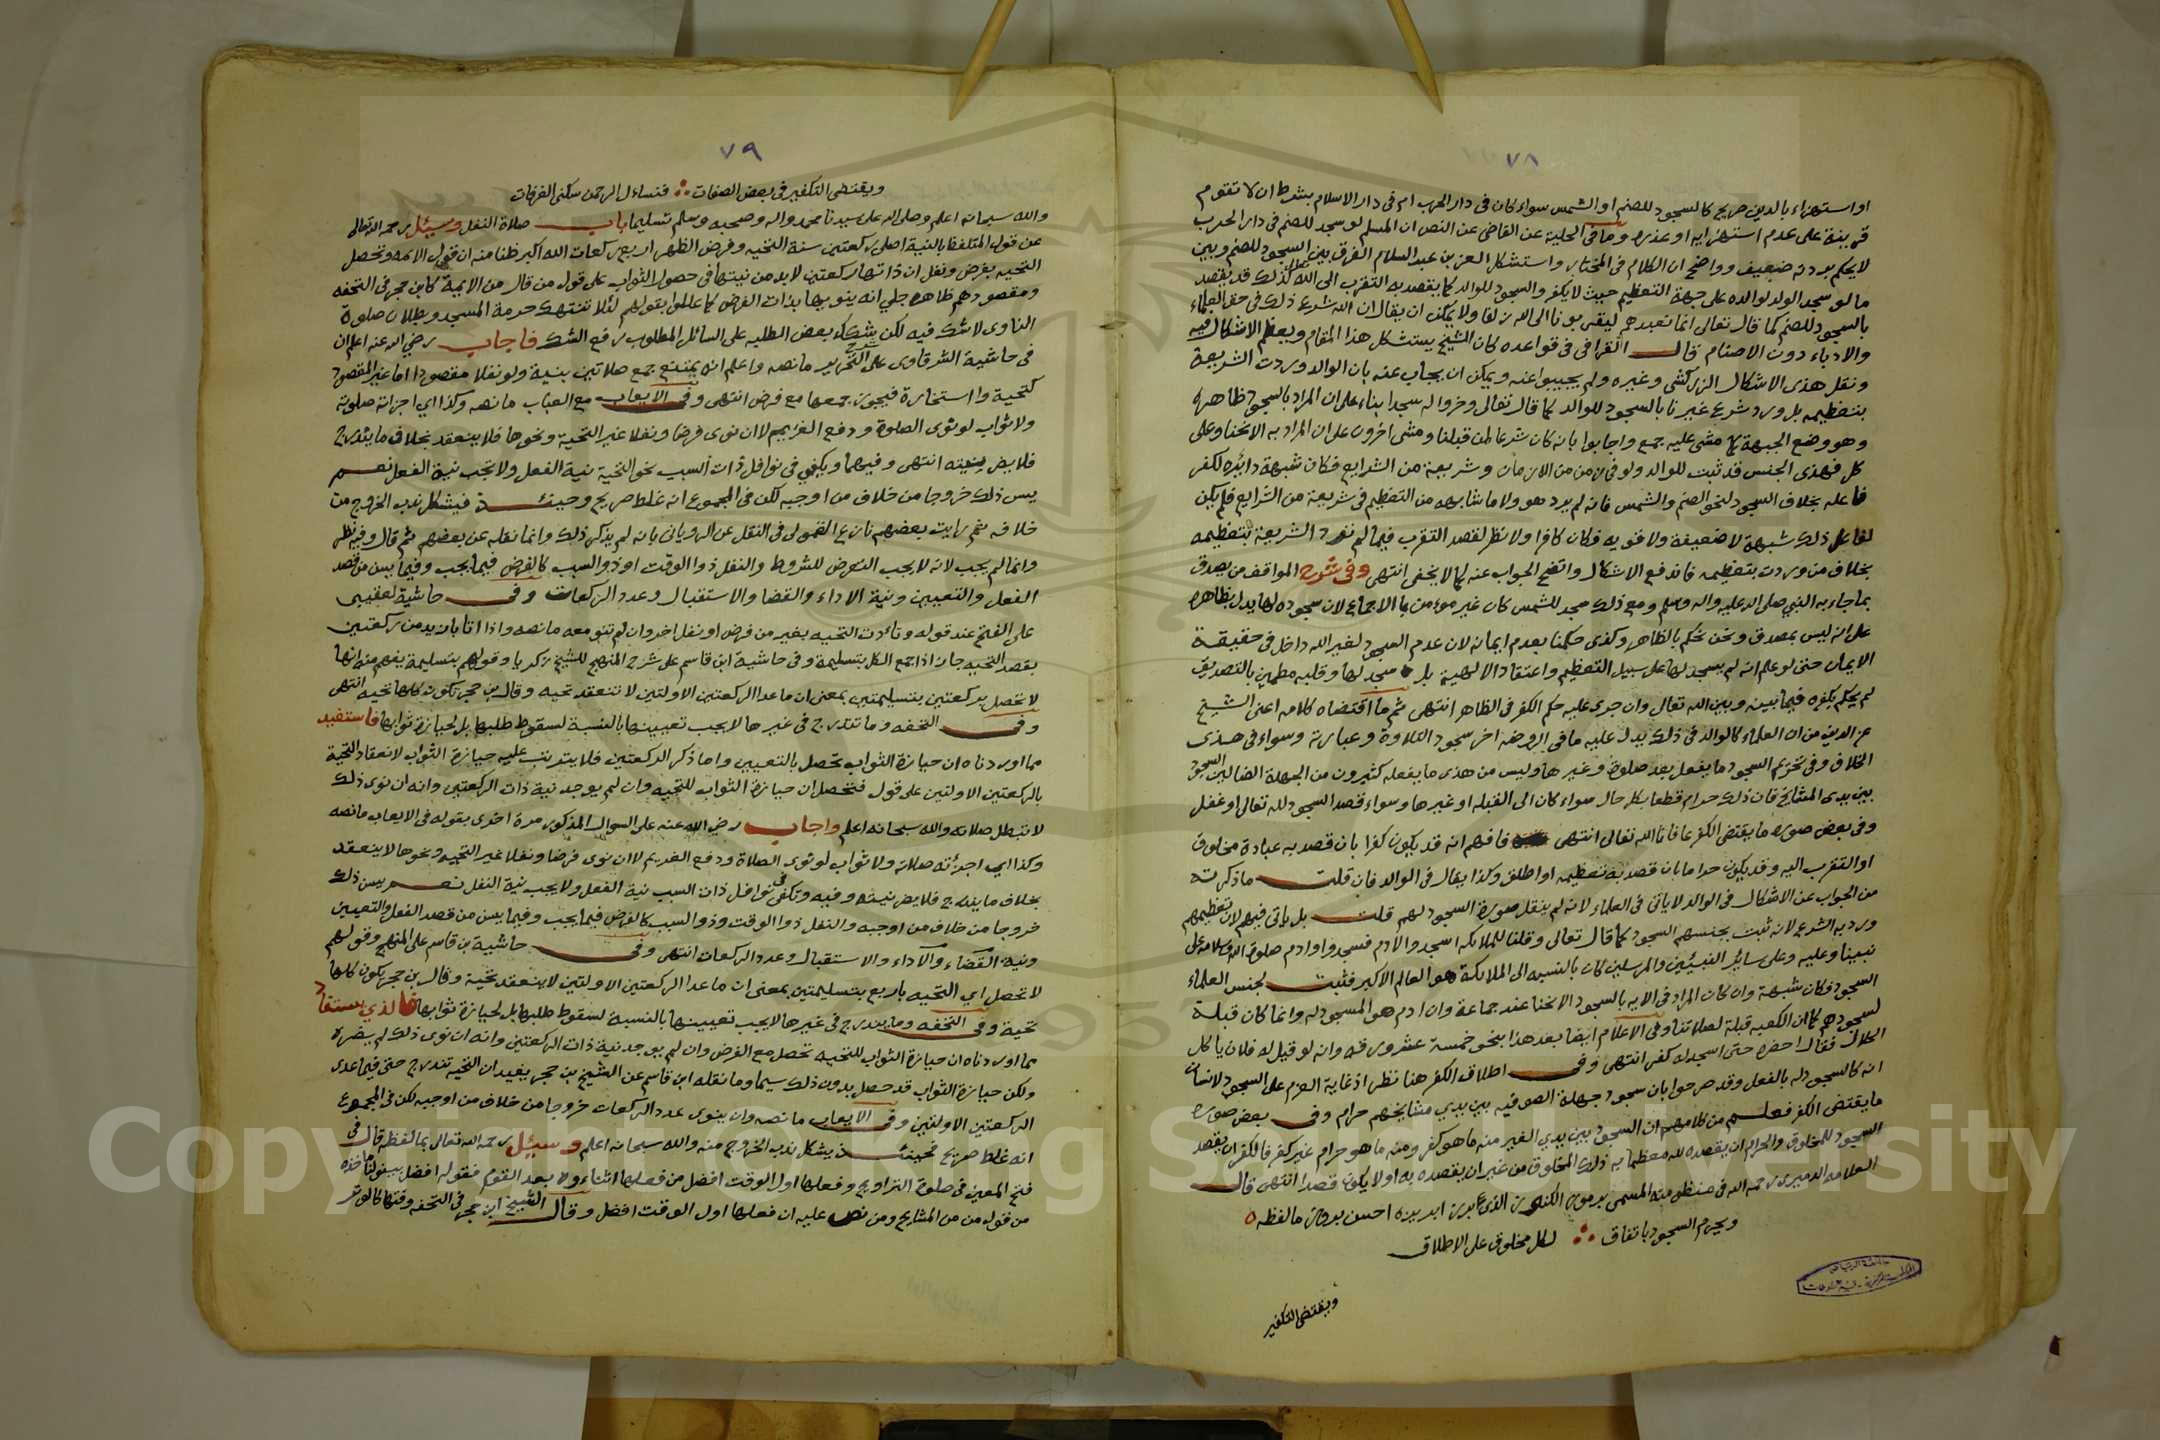 ٧٨
او استهزاء بالدين صريح كالسجود للصنم او الشمس سواء كان فى دار الحرب ام فى دار الاسلام بشرط ان لا تقوم
قرينة على عدم استهزايه او عذره وما فى الحلية عن القاضى عن النص ان المسلم لو سجد للصنم فى دار الحرب
لا يحكم بردته ضعيف وواضح ان الكلام فى المختار واستشكل العز بن عبد السلام الفرق بين السجود للصنم وبين
ما لو سجد الولد لوالده على جهة التعظيم حيث لا يكفر والسجود للوالد كما يقصد به التقرب الى الله كذلك قد يقصد
بالسجود للصنم كما قال تعالى انما نعبدهم ليقربونا الى الله زلفا ولا يمكن ان يقال ان الله شرع ذلك فى حق العلماء
والاباء دون الاصنام قال القرافى فى قواعده كان الشيخ يستشكل هذا المقام ويعظم الاشكال فيه
ونقل هذى الاشكال الزركشى وغيره ولم يجيبوا عنه ويمكن ان يجاب عنه بان الوالد وردت الشريعة
بتعظيمه بل ورد شرع غيرنا بالسجود للوالد كما قال تعالى وخروا له سجدا بناء على ان المراد بالسجود ظاهره
وهو وضع الجبهة كما مشى عليه جمع واجابوا بانه كان شرعا لمن قبلنا ومشى اخرون على ان المراد به الانحنا وعلى
كل فهذى الجنس قد ثبت للوالد ولو فى زمن من الازمان وشريعة من الشرايع فكان شبهة دائره لكفر
فاعله بخلاف السجود لنحو الصنم والشمس فانه لم يرد هو ولا ما شابهه من التعظيم فى شريعة من الشرايع فلم يكن
لفاعل ذلك شبهة لا ضعيفة ولا قويه فكان كافرا ولا نظر لقصد التقرب فيما لم ترد الشريعة بتعظيمه
بخلاف من وردت بتعظيمه فاندفع الاشكال واتضح الجواب عنه كما لا يخفى انتهى وفى شرح المواقف من يصدق
بما جاء به النبي صلى الله عليه واله وسلم ومع ذلك سجد للشمس كان غير مومن بالاجماع لان سجوده لها يدل بظاهره
على انه ليس بمصدق ونحن نحكم بالظاهر وكذى حكمنا بعدم ايمانه لان عدم السجود لغير الله داخل فى حقيقة
الايمان حتى لو علم انه لم يسجد لها على سبيل التعظيم واعتقاد الالهية بل سجد لها وقلبه مطمين بالتصديق
لم يحكم بكفره فيما بينه وبين الله تعالى وان جرى عليه حكم الكفر فى الظاهر انتهى ثم ما اقتضاه كلامه اعنى الشيخ
عز الدين من ان العلماء كالوالد فى ذلك يدل عليه ما فى الروضه اخر سجود التلاوة وعبارته وسواء فى هذى
الخلاف وفى تحريم السجود ما يفعل بعد صلوة وغيرها وليس من هذى ما يفعله كثيرون من الجهلة الضالين السجود
بين يدى المشايخ فان ذلك حرام قطعا بكل حال سواء كان الى القبله او غيرها وسواء قصد السجود لله تعالى او غفل
وفى بعض صوره ما يقتضى الكفر عافانا الله تعالى انتهى فافهم انه قد يكون كفرا بان قصد به عبادة مخلوق
او التقرب اليه وقد يكون حراما بان قصد به تعظيمه او اطلق وكذا يقال فى الوالد فان قلت ما ذكرته
من الجواب عن الاشكال فى الوالد لا ياتى فى العلماء لانه لم ينقل صورة السجود لهم قلت بل ياتى فيهم لان تعظيمهم
ورد به الشرع لانه ثبت بجنسهم السجود كما قال تعالى وقلنا للملائكة اسجدوا لادم فسجدوا وادم صلوة الله وسلامه على
نبينا وعليه وعلى سائر النبيئين والمرسلين كان بالنسبه الى الملائكة هو العالم الاكبر فثبت لجنس العلماء
السجود فكان شبهة وان كان المراد فى الايه بالسجود الانحنا عند جماعة وان ادم هو المسجود له وانما كان قبلة
لسجودهم كما ان الكعبه قبلة لصلاتنا وفى الاعلام ايضا بعد هذا بنحو خمسة عشر ورقه وانه لو قيل له فلان ياكل
الحلال فقال احضره حتى اسجد له كفر انتهى وفى اطلاق الكفر هنا نظر اذ غاية العزم على السجود لانسان
انه كالسجود له بالفعل وقد صرحوا بان سجود جهلة الصوفيه بين يدي مشايخهم حرام وفى بعض صوره
ما يقتضى الكفر فعلم من كلامهم ان السجود بين يدي الغير منه ما هو كفر ومنه ما هو حرام غير كفر فالكفر ان يقصد
السجود للمخلوق والحرام ان يقصده لله معظما به ذلك المخلوق من غير ان يقصده به او لا يكون قصدا انتهى قال
العلامه الدميرى رحمه الله فى منظومته المسمى برموز الكنوز
ويحرم السجود باتفاق ∴ لكل مخلوق على الاطلاق
ويقتضى التكفير
٧٩
ويقتضى التكفير فى بعض الصفات ∴ فنساءل الرحمن سكنى الغرفات
والله سبحانه اعلم وصلى الله على سيدنا محمد واله وصحبه وسلم تسليما باب صلاة النفل وسيئل رحمه الله تعالى
عن قول المتلفظ بالنية اصلى ركعتين سنة التحيه وفرض الظهر اربع ركعات الله اكبر ظنا منه ان قول الائمه وتحصل
التحيه بفرض ونفل ان ذاتها ركعتين لا بد من نيتها فى حصول الثواب على قول من قال من الايمة كابن حجر فى التحفه
ومقصودهم ظاهره جلي انه ينويها بذات الفرض كما عللوا بقولهم لئلا تنتهك حرمة المسجد وبطلان صلوة
الناوى لا شك فيه لكن شكك بعض الطلبه على السائل المطلوب رفع الشك فاجاب رضي الله عنه اعلم ان
فى حاشية الشرقاوى على التحرير ما نصه واعلم انه يمتنع جمع صلاتين بنية ولو نفلا مقصودا اما غير المقصود
كتحية واستخارة فيجوز جمعها مع فرض انتهى وفى الايعاب مع العباب ما نصه وكذا اي اجزاته صلوته
ولا ثواب لو نوى الصلوة ودفع الغريم لا ان نوى فرضا ونفلا غير التحية ونحوها فلا ينعقد بخلاف ما يندرج
فلا يضر بنيته انتهى وفيهما ويكفي فى نوافل ذات السبب نحو التحية نية الفعل ولا تجب نية الفعل نعم
يسن ذلك خروجا من خلاف من اوجبه لكن فى المجموع انه غلط صريح وحينئذ فيشكل ندب الخروج من
خلافه ثم رايت بعضهم نازع القمولى فى النقل عن الرويانى بانه لم يذكر ذلك وانما نقله عن بعضهم ثم قال وفيه نظر
وانما لم يجب لانه لا يجب التعرض للشروط والنفل ذو الوقت او ذو السبب كالفرض فيما يجب وفيما يسن من قصد
الفعل والتعيين ونية الاداء والقضا والاستقبال وعدد الركعات وفى حاشية
على الفتح عند قوله وتادت التحيه بغير من فرض او نفل اخر وان لم تنو معه ما نصه واذا اتا بازيد من ركعتين
بقصد التحيه جاز اذا جمع الكل بتسليمة وفى حاشية ابن قاسم على شرح المنهج للشيخ زكريا وقولهم بتسليمة يفهم منه انها
لا تحصل بركعتين بتسليمتين بمعنى ان ما عدا الركعتين الاولتين لا تنعقد تحيه وقال بن حجر تكون كلها تحيه انتهى
وفى التحفه وما تندرج فى غيرها لا يجب تعيينها بالنسبة لسقوط طلبها بل لحيازة ثوابها فاستفيد
مما اوردناه ان حيازة الثواب تحصل بالتعيين واما ذكر الركعتين فلا يترتب عليه حيازة الثواب لانعقاد التحية
بالركعتين الاولتين على قول فتحصل ان حيازة الثواب للتحيه وان لم يوجد نية ذات الركعتين وانه ان نوى ذلك
لا تبطل صلاته والله سبحانه اعلم واجاب رضي الله عنه على السوال المذكور مرة اخرى بقوله فى الايعاب ما نصه
وكذا اي اجزئته صلاته ولا ثواب لو نوى الصلاة ودفع الغريم لا ان نوى فرضا ونفلا غير التحيه ونحوها لا ينعقد
بخلاف ما يندرج فلا يضر نيته وفيه وتكفى فى نوافل ذات السبب نية الفعل ولا يجب نية النفل نعم يسن ذلك
خروجا من خلاف من اوجبه والنفل ذو الوقت وذو السبب كالفرض فيما يجب وفيما يسن من قصد الفعل والتعيين
ونية القضاء والآداء والاستقبال وعدد الركعات انتهى وفى حاشية بن قاسم على المنهج وقولهم
لا تحصل اي التحيه باربع بتسليمتين بمعنى ان ما عدا الركعتين الاولتين لا ينعقد تحية وقال بن حجر يكون كلها
تحية وفى التحفه وما يندرج فى غيرها لا يجب تعيينها بالنسبة لسقوط طلبها بل لحيازة ثوابها فالذي يستفاد
مما اوردناه ان حيازة الثواب للتحيه تحصل مع الفرض وان لم يوجد نية ذات الركعتين وانه ان نوى ذلك لم يضره
ولكن حيازة الثواب قد حصل بدون ذلك سيما وما نقله ابن قاسم عن الشيخ بن حجر يفيد ان التحيه تندرج حتى فيما عدى
الركعتين الاولتين وفى الايعاب ما نصه وان ينوى عدد الركعات خروجا من خلاف من اوجبه لكن فى المجموع
انه غلط صريح فحينئذ يشكل ندب الخروج منه والله سبحانه اعلم وسيئل رحمه الله تعالى بما لفظه قال فى
فتح المعين فى صلوة التراويح وفعلها اول الوقت افضل من فعلها اثناءه ولا بعد النوم فقوله افضل
من قوله من من المشايخ ومن نص عليه ان فعلها اول الوقت افضل وقال الشيخ ابن حجر فى التحفه وقتها كالوتر
Copyright © King Saud University